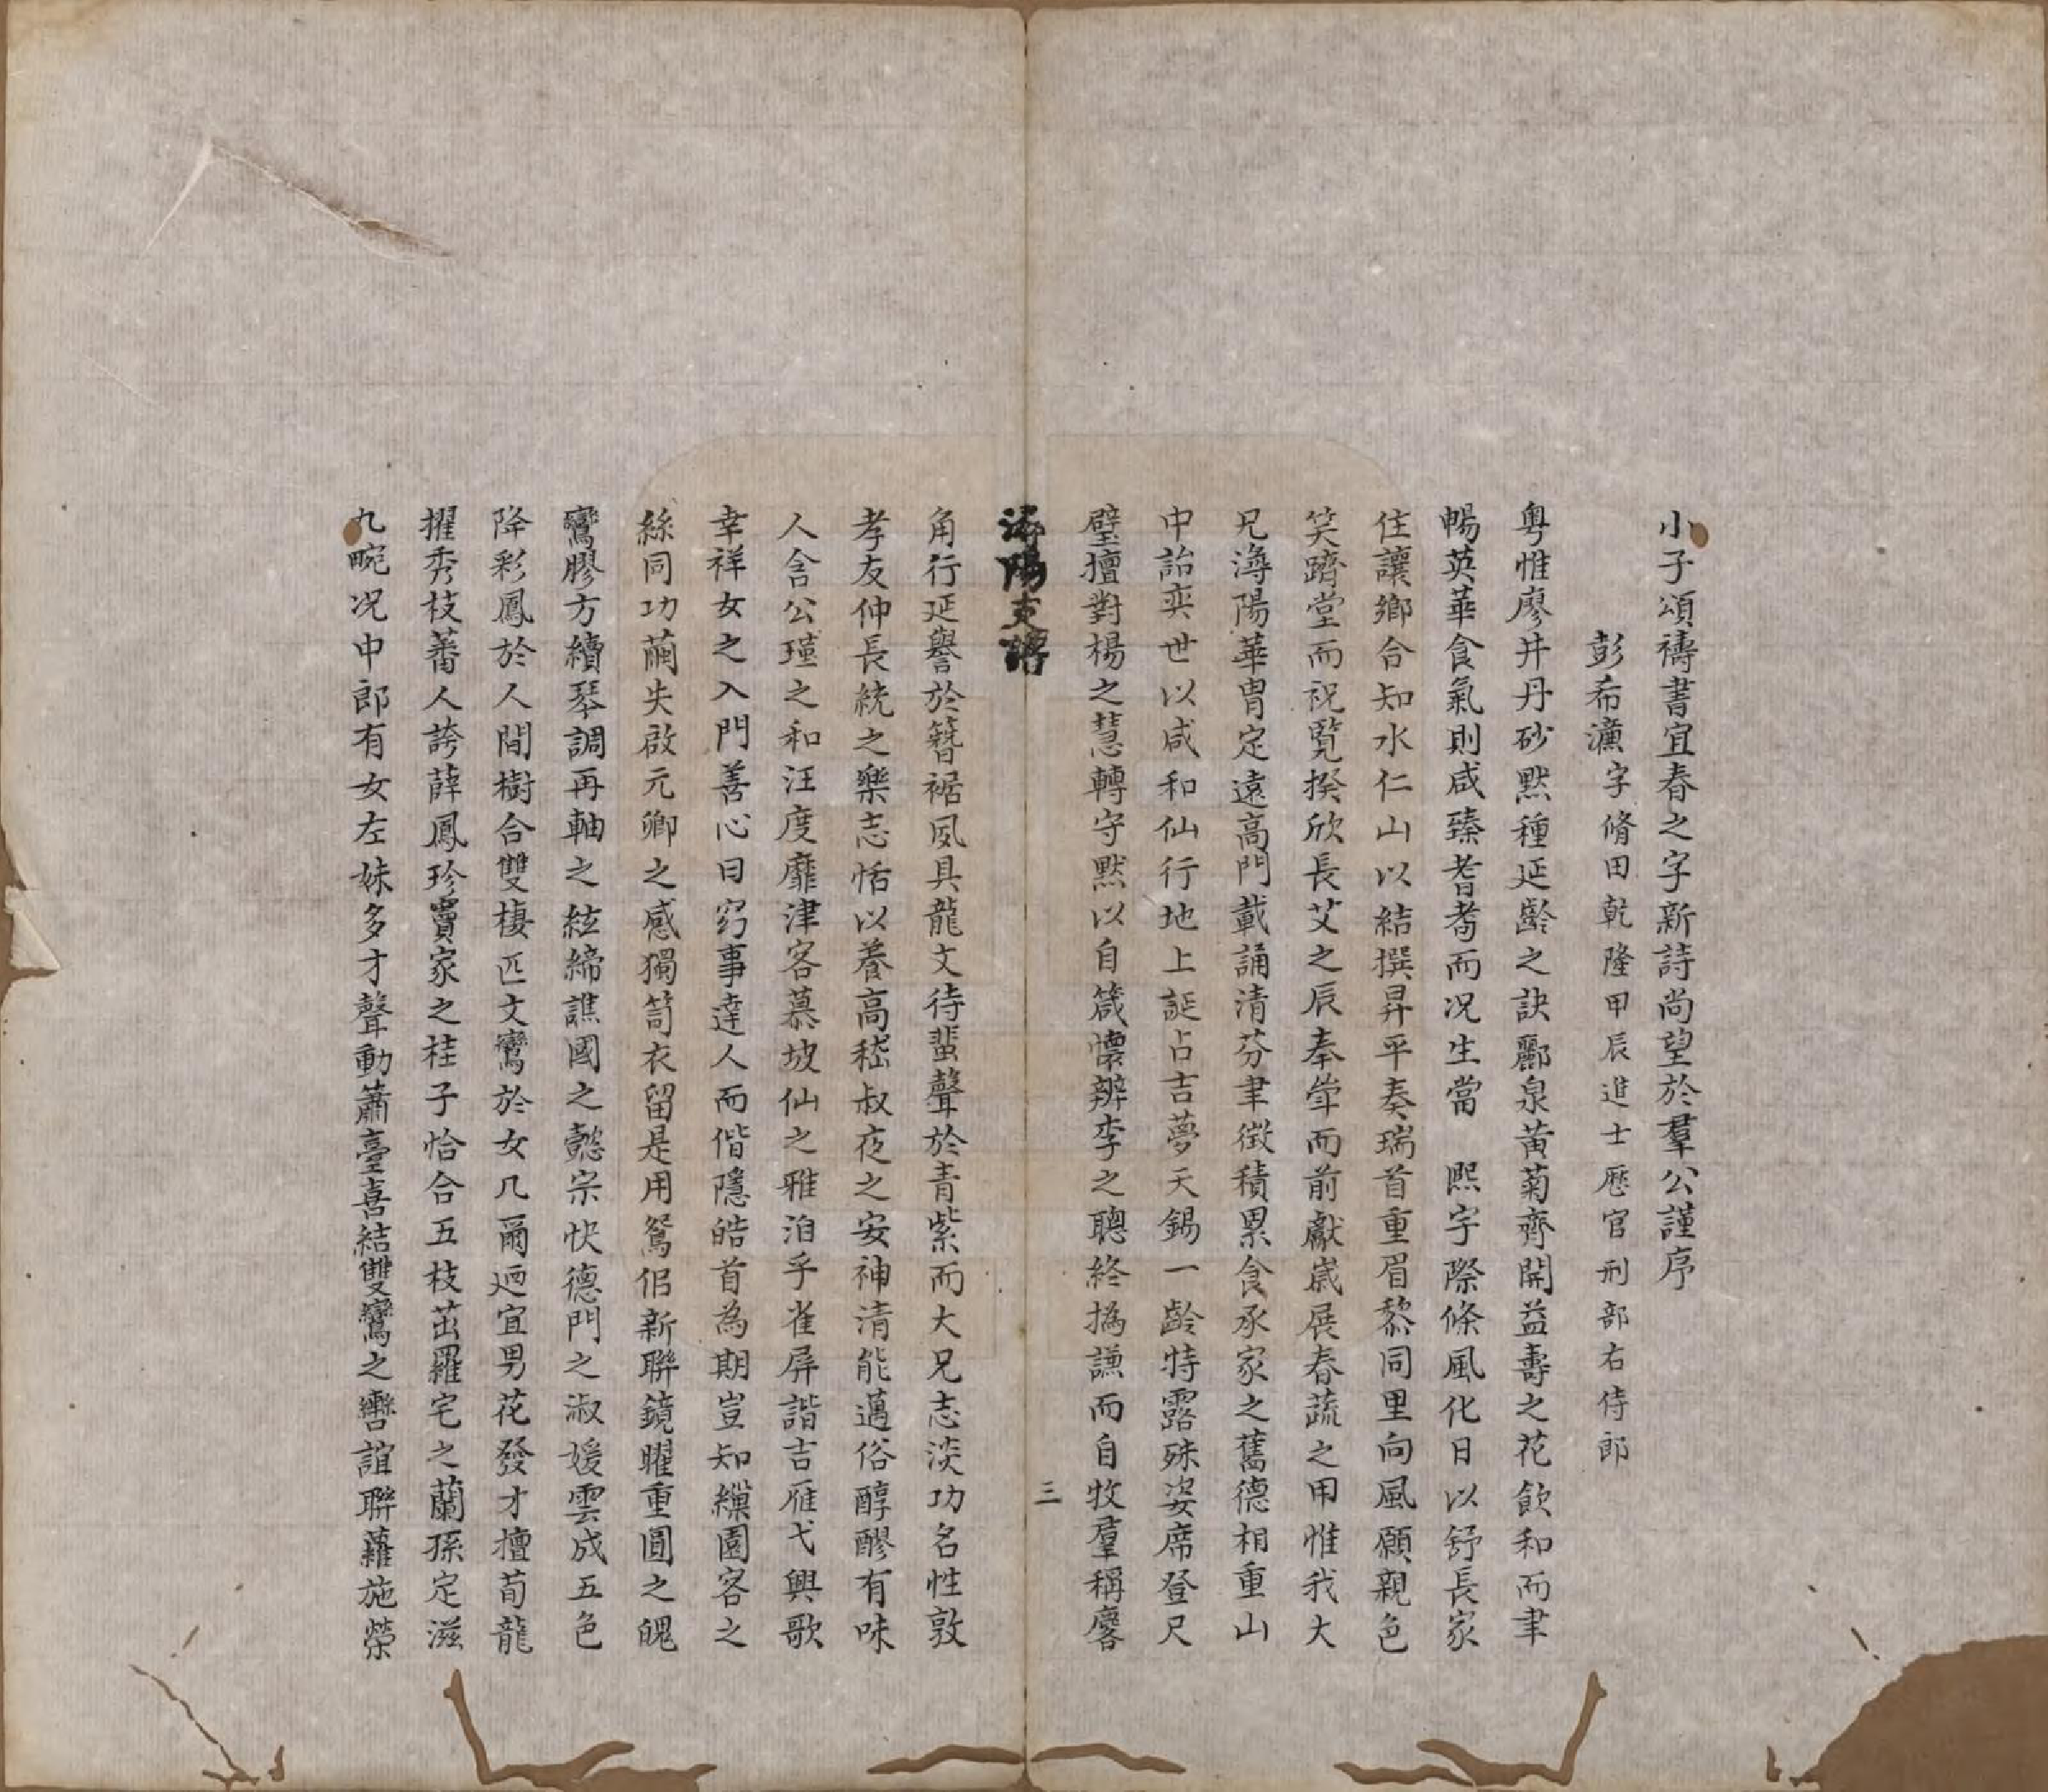 小子頌禱書宜春之字新詩尚望於羣公謹序
彭希濂字脩田乾隆甲辰進士歷官刑部右侍郎
粵惟廖井丹砂默種延齡之訣酈泉黃菊齊開益壽之花飲和而聿
暢英華食氣則咸臻耆耇而况生當 熙宇際條風化日以舒長家
住讓鄉合知水仁山以結撰昇平奏瑞首重眉黎同里向風願親色
笑躋堂而祝覽揆欣長艾之辰奉觴而前獻歲展春蔬之用惟我大
兄潯陽華胄定遠高門載誦清芬聿徵積累食承家之舊德相重山
中詒奕世以咸和仙行地上誕占吉夢天錫一齡特露殊姿席登尺
璧擅對楊之慧轉守默以自箴懷辨李之聰終撝謙而自牧羣稱麐
潯陽支譜
三
角行延譽於簪裾夙具龍文待蜚聲於青紫而大兄志淡功名性敦
孝友仲長統之樂志恬以養高嵇叔夜之安神清能邁俗醇醪有味
人含公瑾之和汪度靡津客慕坡仙之雅洎乎雀屏諧吉雁弋興歌
幸祥女之入門善心曰窈事達人而偕隱皓首為期豈知繅園客之
絲同功繭失啟元卿之感獨笥衣留是用鴛侶新聯鏡曜重圓之魄
鸞膠方續琴調再軸之絃締譙國之懿宗快德門之淑媛雲成五色
降彩鳳於人間樹合雙棲匹文鸞於女几爾迺宜男花發才擅荀龍
擢秀枝蕃人誇薛鳳珍竇家之桂子恰合五枝茁羅宅之蘭孫定滋
九畹况中郎有女左妹多才聲動蕭臺喜結雙鸞之轡誼聯蘿施榮